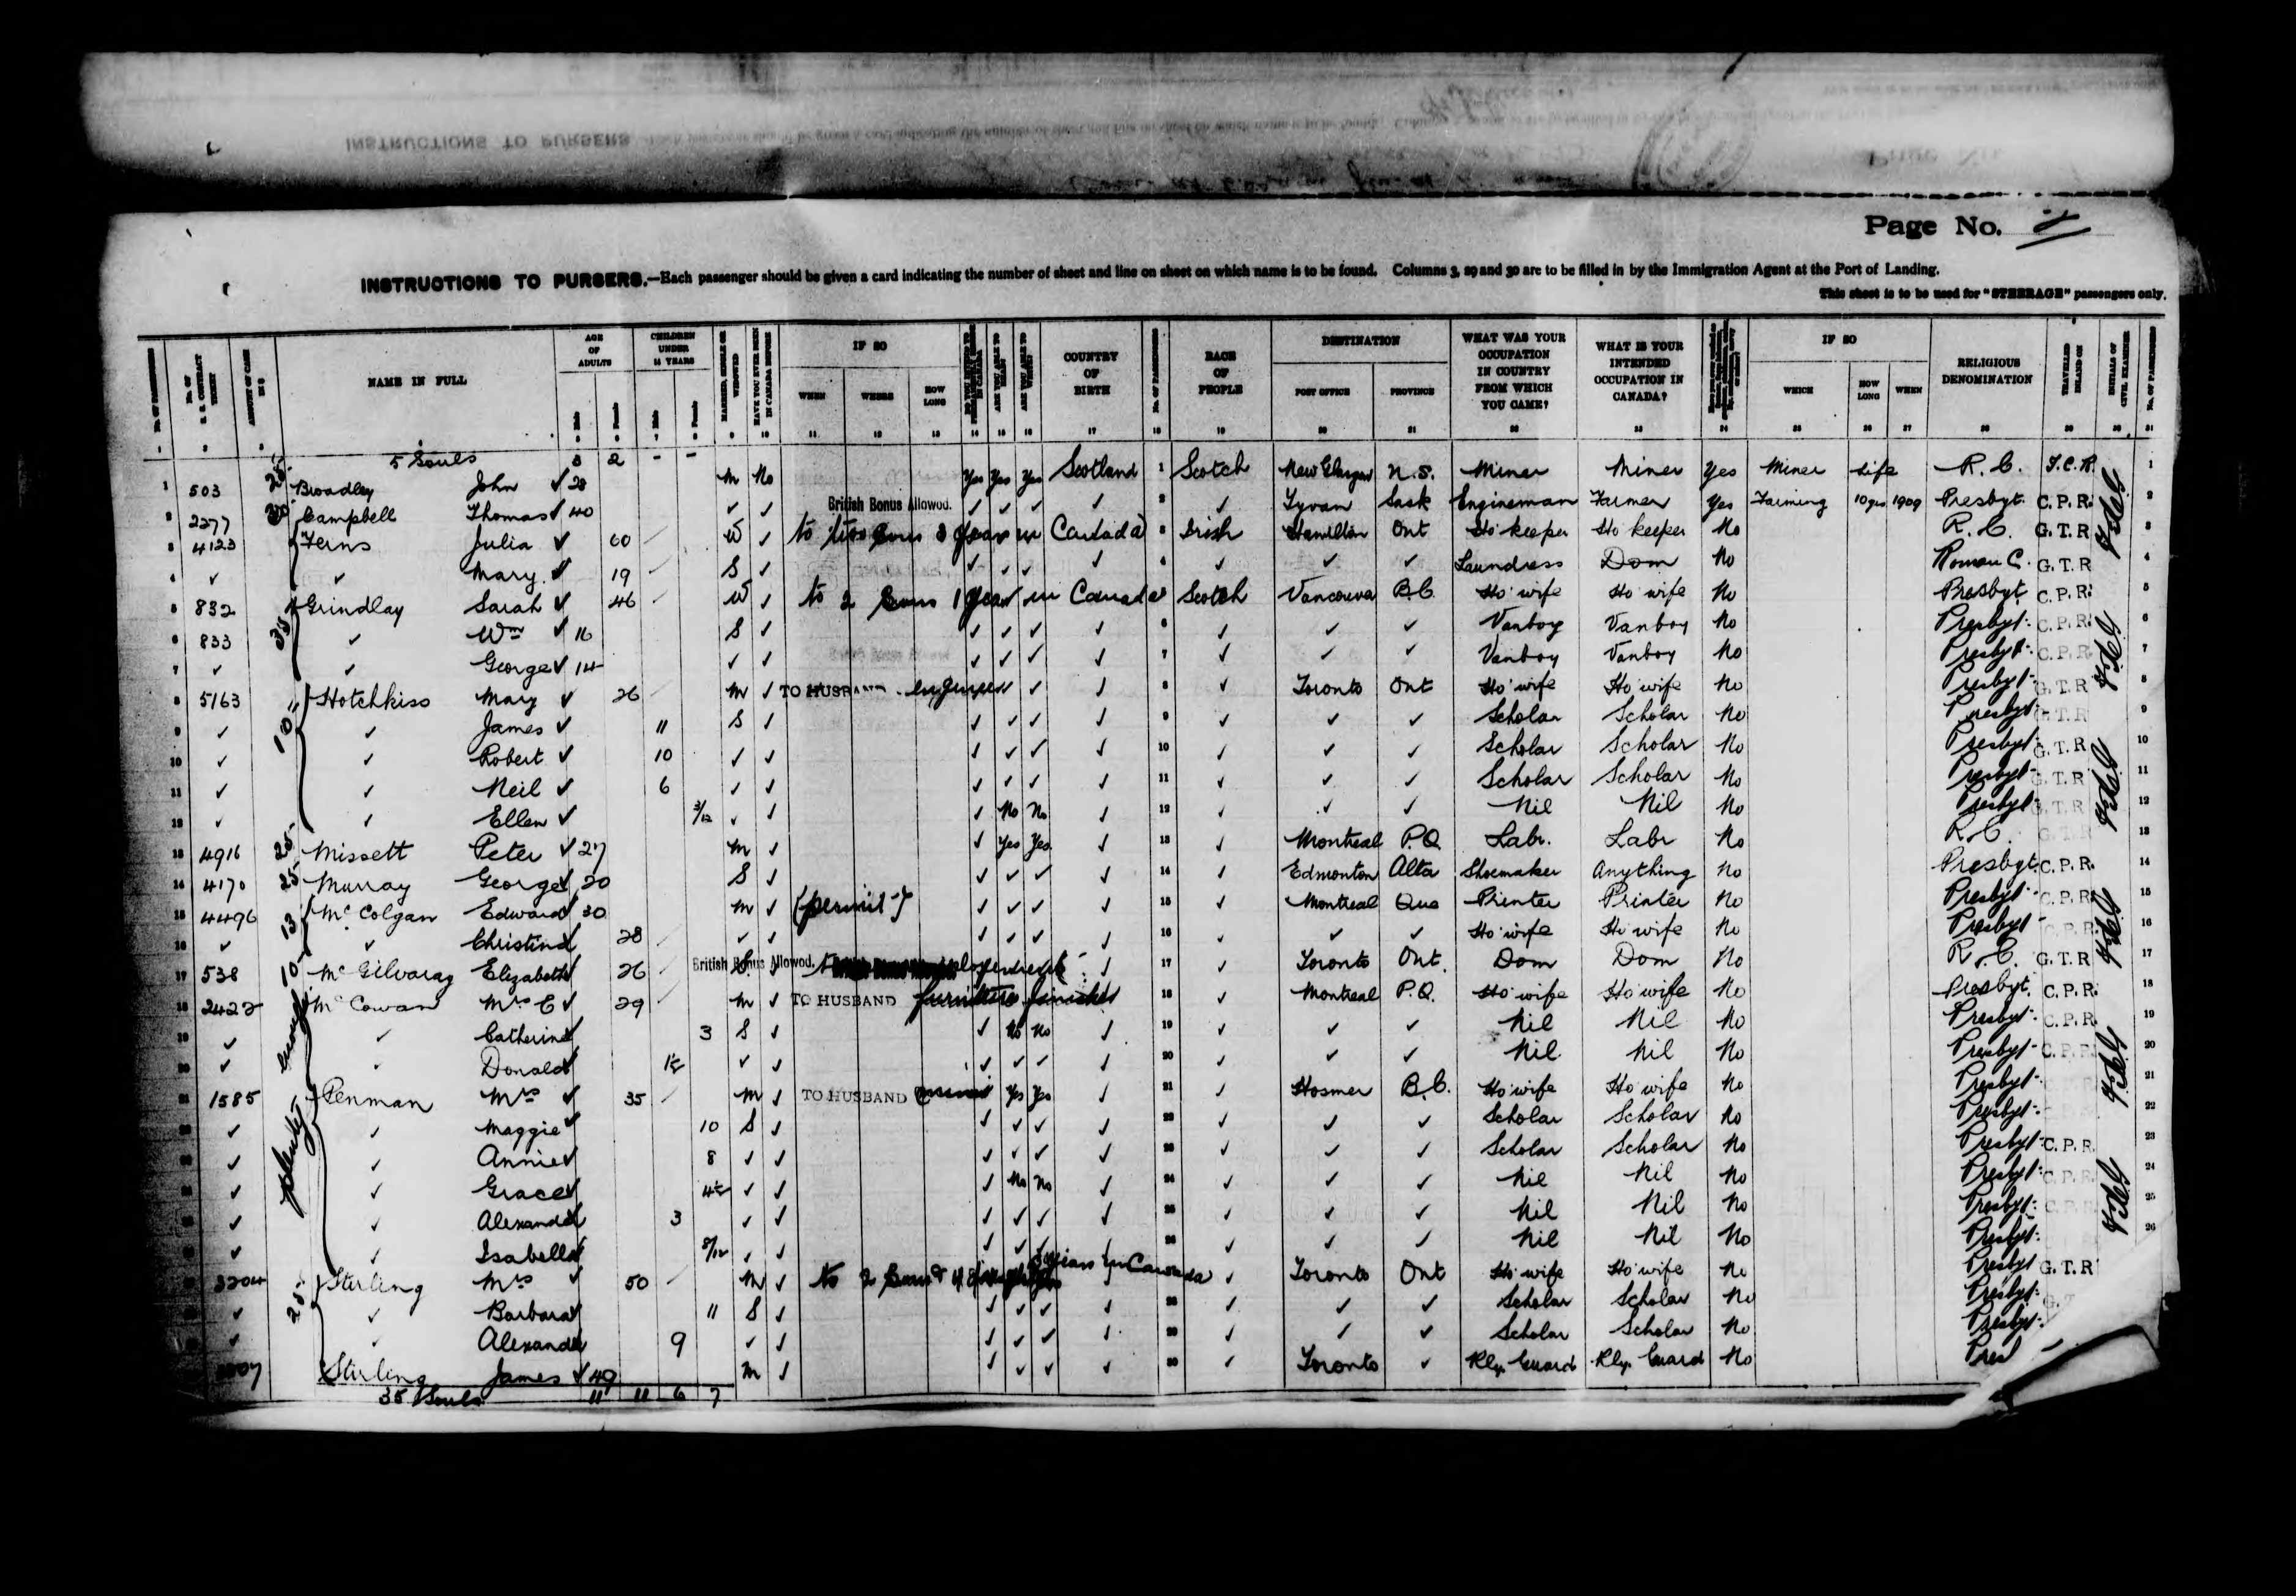 Page No.
INSTRUCTIONS TO PURSERS.—Each passenger should be given a card indicating the number of sheet and line on sheet on which name is to be found. Columns 3, 29 and 30 are to be filled in by the Immigration Agent at the Port of Landing.
This sheet is to be used for "STEERAGE" passengers only.
No. OF PASSENGERS NAME IN FULL AGE OF ADULTS Male Female CHILDREN UNDER 14 YEARS Male Female MARRIED, SINGLE OR WIDOWED HAVE YOU EVER BEEN IN CANADA BEFORE IF SO WHEN WHERE HOW LONG ARE YOU ABLE TO READ ARE YOU ABLE TO WRITE COUNTRY OF BIRTH No. OF PASSENGERS RACE OF PEOPLE DESTINATION POST OFFICE PROVINCE WHAT WAS YOUR OCCUPATION IN COUNTRY FROM WHICH YOU CAME? WHAT IS YOUR INTENDED OCCUPATION IN CANADA? IF SO WHICH HOW LONG WHEN RELIGIOUS DENOMINATION TRAVELLED INLAND ON INITIALS OF CIVIL EXAMINER No. OF PASSENGERS
5 Souls 3 2 - -
1 503 25 Broadley John ✓ 28 M No Yes Yes Yes Scotland 1 Scotch New Glasgow N.S. Miner Miner Yes Miner Life R. C. I.C.R. 1
2 2277 Campbell Thomas ✓ 40 ✓ ✓ British Bonus Allowed. ✓ ✓ ✓ ✓ 2 ✓ Tyvan Sask Engineman Farmer Yes Farming 10 yrs 1909 Presbyt. C.P.R. 2
3 4123 Ferns Julia ✓ 60 W ✓ to two sons 3 years in Canada 3 Irish Hamilton Ont Ho' keeper Ho keeper No R. C. G.T.R 3
4 ✓ ✓ Mary ✓ 19 S ✓ ✓ ✓ ✓ ✓ 4 ✓ ✓ ✓ Laundress Dom No Roman C. G.T.R 4
5 832 Grindlay Sarah ✓ 46 W ✓ to 2 Sons 1 year in Canada Scotch Vancouver B.C. Ho' wife Ho' wife No Presbyt. C.P.R. 5
6 833 ✓ Wm ✓ 16 S ✓ ✓ ✓ ✓ ✓ 6 ✓ ✓ ✓ Vanboy Vanboy No Presbyt. C.P.R. 6
7 ✓ ✓ George ✓ 14 ✓ ✓ ✓ ✓ ✓ ✓ 7 ✓ ✓ ✓ Vanboy Vanboy No Presbyt. C.P.R. 7
8 5163 10 Hotchkiss Mary ✓ 26 M ✓ TO HUSBAND engineer ✓ ✓ 8 ✓ Toronto Ont Ho' wife Ho' wife No Presbyt. G.T.R 8
9 ✓ ✓ James ✓ 11 S ✓ ✓ ✓ ✓ ✓ 9 ✓ ✓ ✓ Scholar Scholar No Presbyt. G.T.R 9
10 ✓ ✓ Robert ✓ 10 ✓ ✓ ✓ ✓ ✓ ✓ 10 ✓ ✓ ✓ Scholar Scholar No Presbyt. G.T.R 10
11 ✓ ✓ Neil ✓ 6 ✓ ✓ ✓ ✓ ✓ ✓ 11 ✓ ✓ ✓ Scholar Scholar No Presbyt. G.T.R 11
12 ✓ ✓ Ellen ✓ 3/12 ✓ ✓ ✓ No No ✓ 12 ✓ ✓ ✓ Nil Nil No Presbyt. G.T.R 12
13 4916 25 Missett Peter ✓ 27 M ✓ ✓ Yes Yes ✓ 13 ✓ Montreal P.Q. Labr. Labr No R.C. G.T.R 13
14 4170 25 Murray George ✓ 20 S ✓ ✓ ✓ ✓ ✓ 14 ✓ Edmonton Alta Shoemaker Anything No Presbyt. C.P.R. 14
15 4496 13 McColgan Edward 30 M ✓ (permit) ✓ ✓ ✓ ✓ 15 ✓ Montreal Que Printer Printer No Presbyt. C.P.R. 15
16 ✓ ✓ Christina 28 ✓ ✓ ✓ ✓ ✓ ✓ 16 ✓ ✓ ✓ Ho' wife Ho' wife No Presbyt. C.P.R. 16
17 538 10 McGilvaray Elizabeth 26 British Bonus Allowed. S ✓ ✓ 17 ✓ Toronto Ont. Dom Dom No R.C. G.T.R 17
18 2422 McCowan Mrs C ✓ 29 M ✓ TO HUSBAND furniture finisher 18 ✓ Montreal P.Q. Ho' wife Ho' wife No Presbyt. C.P.R. 18
19 ✓ ✓ Catherine 3 S ✓ ✓ No No ✓ 19 ✓ ✓ ✓ Nil Nil No Presbyt. C.P.R. 19
20 ✓ ✓ Donald ✓ ✓ ✓ ✓ ✓ ✓ 20 ✓ ✓ ✓ Nil Nil No Presbyt. C.P.R. 20
21 1585 plenty Penman Mrs ✓ 35 M ✓ TO HUSBAND (miner) Yes Yes ✓ 21 ✓ Hosmer B.C. Ho' wife Ho' wife No Presbyt. 21
✓ ✓ Maggie ✓ 10 S ✓ ✓ ✓ ✓ ✓ 22 ✓ ✓ ✓ Scholar Scholar No Presbyt. 22
✓ ✓ Annie ✓ 8 ✓ ✓ ✓ ✓ ✓ ✓ 23 ✓ ✓ ✓ Scholar Scholar No Presbyt. C.P.R. 23
✓ ✓ Grace ✓ 4½ ✓ ✓ ✓ No No ✓ 24 ✓ ✓ ✓ Nil Nil No Presbyt. C.P.R. 24
✓ ✓ Alexander 3 ✓ ✓ ✓ ✓ ✓ ✓ 25 ✓ ✓ ✓ Nil Nil No Presbyt. C.P.R. 25
✓ ✓ Isabella 8/12 ✓ ✓ ✓ ✓ ✓ 26 ✓ ✓ ✓ Nil Nil No Presbyt. 26
3204 25 Stirling Mrs ✓ 50 M ✓ to 2 Sons & 4 years in Canada ✓ Toronto Ont Ho' wife Ho' wife No Presbyt G.T.R
✓ ✓ Barbara 11 S ✓ ✓ ✓ ✓ ✓ 28 ✓ ✓ ✓ Scholar Scholar No Presbyt.
✓ ✓ Alexander 9 ✓ ✓ ✓ ✓ ✓ ✓ 29 ✓ ✓ ✓ Scholar Scholar No Presbyt.
Stirling James ✓ 49 M ✓ ✓ ✓ ✓ ✓ 30 ✓ Toronto ✓ Rly. Guard Rly. Guard No Pres
35 Souls 11 11 6 7